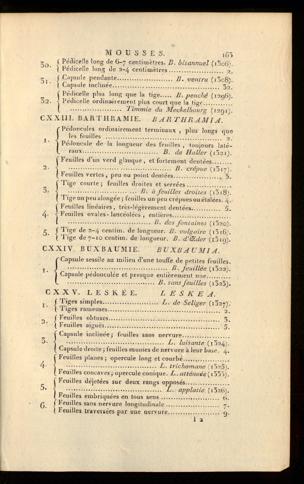 MOUSSES. 163
30. Pédicelle long de 6-7 centimètres. B. bisannuel (1306).
Pédicelle long de 2-4 centimètres .......... 2.
31. Capsule pendante .......... B. ventru (1308).
Capsule inclinée .......... 32.
32. Pédicelle plus long que la tige .......... B. penché (1296).
Pédicelle ordinairement plus court que la tige ..........
Timmie du Mecklbourg (1291).
CXXIII. BARTHRAMIE. BARTHRAMIA.
1. Pédoncules ordinairement terminaux, plus longs que
les feuilles .......... 2.
Pédoncule de la longueur des feuilles, toujours laté-
raux .......... B. de Haller (1321).
2. Feuilles d'un verd glauque, et fortement dentées ..........
B. crépue (1317).
Feuilles vertes, peu ou point dentées .......... 3.
3. Tige courte; feuilles droites et serrées ..........
B. à feuilles droites (1318).
Tige un peu alongée; feuilles un peu crépues ou étalées. 4.
4. Feuilles linéaires, très-légèrement dentées .......... 5.
Feuilles ovales-lancéolées, entières ..........
B. des fontaines (1320).
5. Tige de 2-4 centim. de longueur. B. vulgaire (1316).
Tige de 7-10 centim. de longueur. B. d'Œder (1319).
CXXIV. BUXBAUMIE. BUXBAUMIA.
1. Capsule sessile au milieu d'une touffe de petites feuilles.
B. feuillée (1322).
Capsule pédonculée et presque entièrement nue ..........
B. sans feuilles (1323).
CXXV. LESKÉE. LESKEA.
1. Tiges simples .......... L. de Seliger (1327).
Tiges rameuses .......... 2.
2. Feuilles obtuses .......... 3.
Feuilles aiguës .......... 5.
3. Capsule inclinée; feuilles sans nervure ..........
L. luisante (1324).
Capsule droite; feuilles munies de nervure à leur base. 4.
4. Feuilles planes; opercule long et courbé ..........
L. trichomane (1325).
Feuilles concaves; opercule conique. L. atténuée (1333).
5. Feuilles déjetées sur deux rangs opposés ..........
L. applatie (1326).
Feuilles embriquées en tous sens .......... 6.
6. Feuilles sans nervure longitudinale .......... 7.
Feuilles traversées par une nervure .......... 9.
l 2